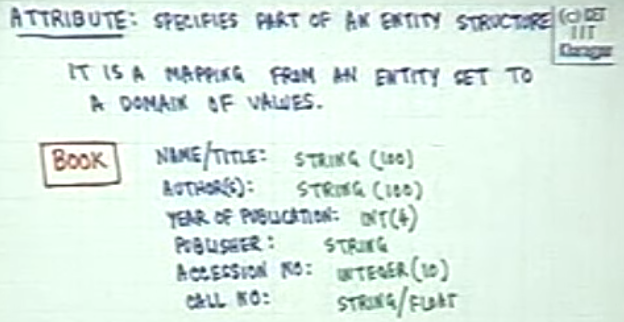 ATTRIBUTE: SPECIFIES PART OF AN ENTITY STRUCTURE
(C) CET
IIT
Kharagpur
IT IS A MAPPING FROM AN ENTITY SET TO
A DOMAIN OF VALUES.
BOOK
NAME/TITLE: STRING (100)
AUTHOR(S): STRING (100)
YEAR OF PUBLICATION: INT(4)
PUBLISHER: STRING
ACCESSION NO: INTEGER(10)
CALL NO: STRING/FLOAT